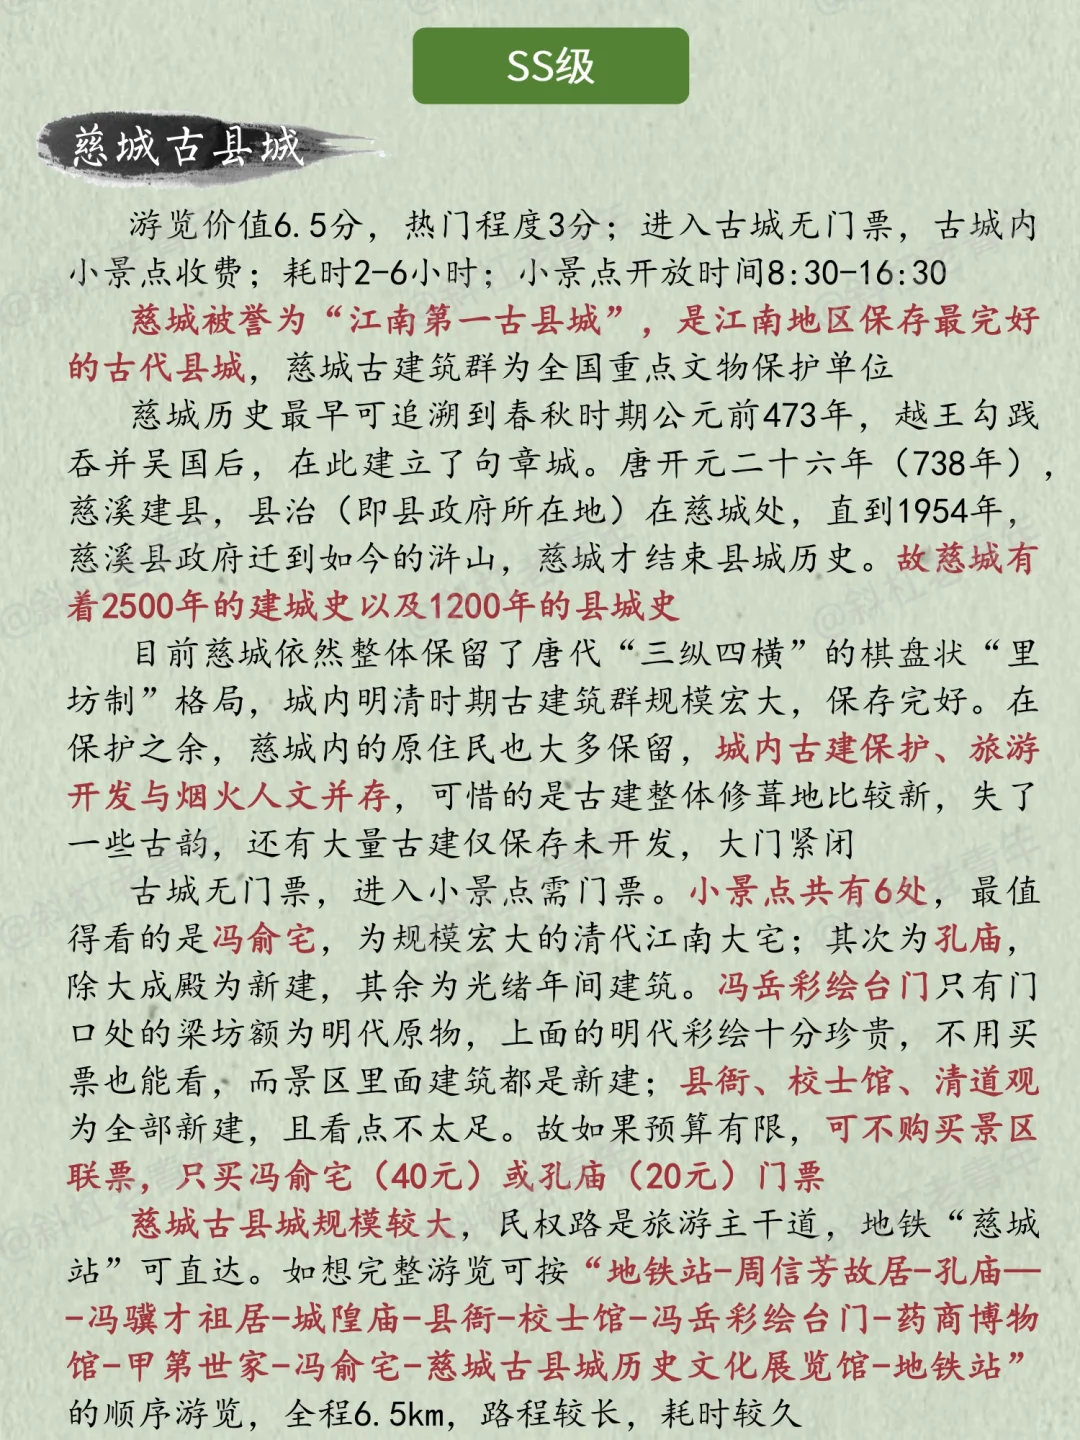 SS级
慈城古县城
游览价值6.5分，热门程度3分；进入古城无门票，古城内
小景点收费；耗时2-6小时；小景点开放时间8:30-16:30
慈城被誉为“江南第一古县城”，是江南地区保存最完好
的古代县城，慈城古建筑群为全国重点文物保护单位
慈城历史最早可追溯到春秋时期公元前473年，越王勾践
吞并吴国后，在此建立了句章城。唐开元二十六年（738年），
慈溪建县，县治（即县政府所在地）在慈城处，直到1954年，
慈溪县政府迁到如今的浒山，慈城才结束县城历史。故慈城有
着2500年的建城史以及1200年的县城史
目前慈城依然整体保留了唐代“三纵四横”的棋盘状“里
坊制”格局，城内明清时期古建筑群规模宏大，保存完好。在
保护之余，慈城内的原住民也大多保留，城内古建保护、旅游
开发与烟火人文并存，可惜的是古建整体修葺地比较新，失了
一些古韵，还有大量古建仅保存未开发，大门紧闭
古城无门票，进入小景点需门票。小景点共有6处，最值
得看的是冯俞宅，为规模宏大的清代江南大宅；其次为孔庙，
除大成殿为新建，其余为光绪年间建筑。冯岳彩绘台门只有门
口处的梁坊额为明代原物，上面的明代彩绘十分珍贵，不用买
票也能看，而景区里面建筑都是新建；县衙、校士馆、清道观
为全部新建，且看点不太足。故如果预算有限，可不购买景区
联票，只买冯俞宅（40元）或孔庙（20元）门票
慈城古县城规模较大，民权路是旅游主干道，地铁“慈城
站”可直达。如想完整游览可按“地铁站-周信芳故居-孔庙—
-冯骥才祖居-城隍庙-县衙-校士馆-冯岳彩绘台门-药商博物
馆-甲第世家-冯俞宅-慈城古县城历史文化展览馆-地铁站”
的顺序游览，全程6.5km，路程较长，耗时较久